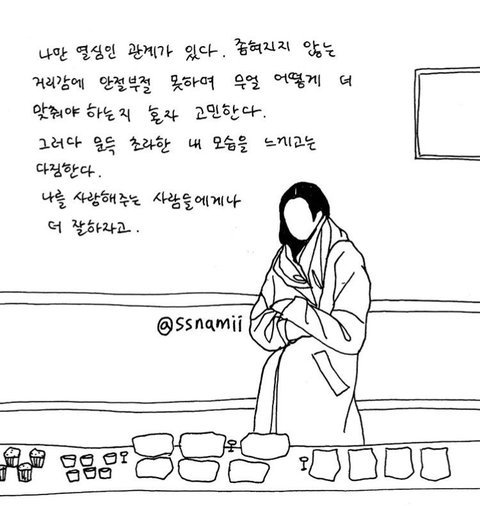 나만 열심인 관계가 있다. 좁혀지지 않는
거리감에 안절부절 못하며 무얼 어떻게 더
맞춰야 하는지 혼자 고민한다.
그러다 문득 초라한 내 모습을 느끼고는
다짐한다.
나를 사랑해주는 사람들에게나
더 잘하자고.
@ssnamii